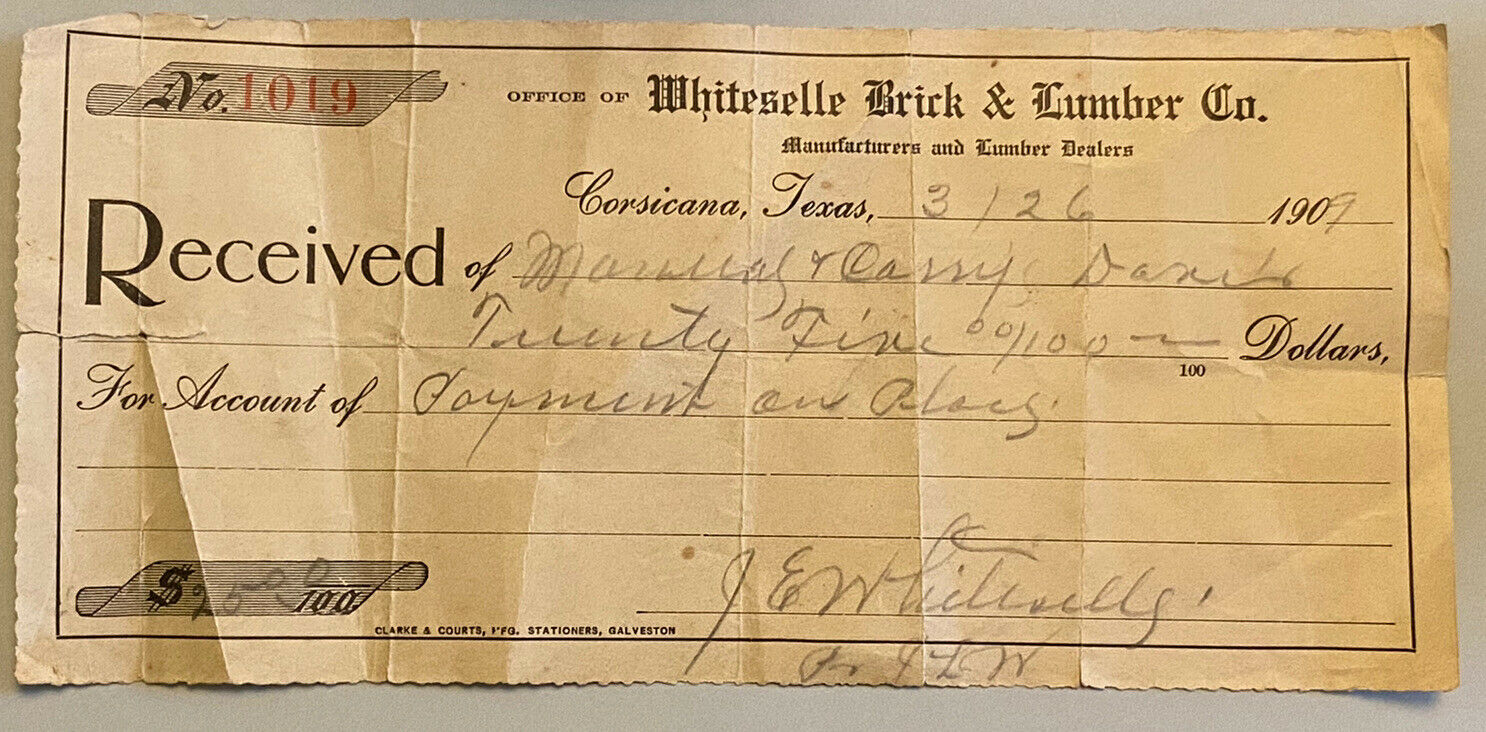 No. 1019
OFFICE OF Whiteselle Brick & Lumber Co.
Manufacturers and Lumber Dealers
Corsicana, Texas, 3/26 1909
Received of & Carry Davis
Twenty Five 00/100 Dollars,
100
For Account of Payment on Place
$ 25 00/100
J E Whiteselle
CLARKE & COURTS, MFG. STATIONERS, GALVESTON
Pr J L W